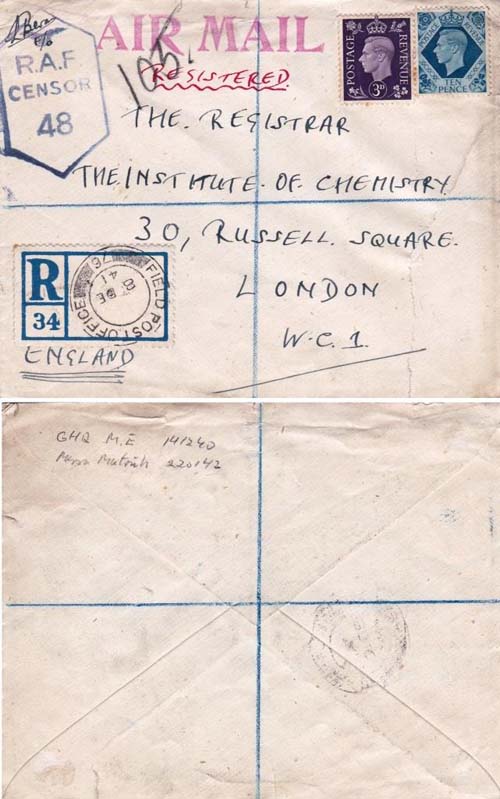 AIR MAIL
R.A.F.
CENSOR
48
REGISTERED
POSTAGE REVENUE
3D
TEN
PENCE
THE REGISTRAR
THE INSTITUTE OF CHEMISTRY.
30, RUSSELL SQUARE.
LONDON
W.C.1.
R
34
FIELD POST OFFICE 76
8 DE
41
ENGLAND
GHQ M.E 141240
Matruh 220142